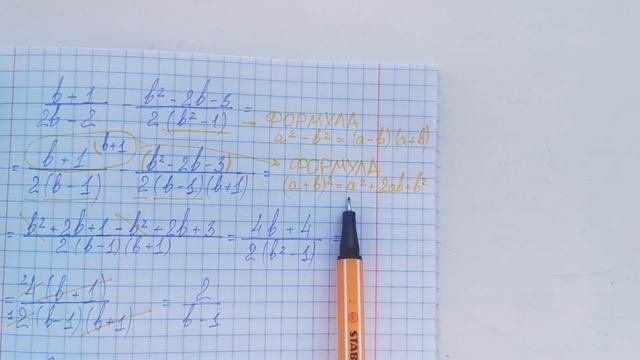 b + 1 / 2b - 2 - b² - 2b - 3 / 2(b² - 1) =
→ ФОРМУЛА
a² - b² = (a - b)(a + b)
= b + 1 (b+1 / 2(b - 1) - (b² - 2b - 3) / 2(b - 1)(b + 1) =
ФОРМУЛА
(a + b)² = a² + 2ab + b²
= b² + 2b + 1 - b² + 2b + 3 / 2(b - 1)(b + 1) = 4b + 4 / 2(b² - 1) =
= ²4(b + 1) / 12(b - 1)(b + 1) = 2 / b - 1
STAB